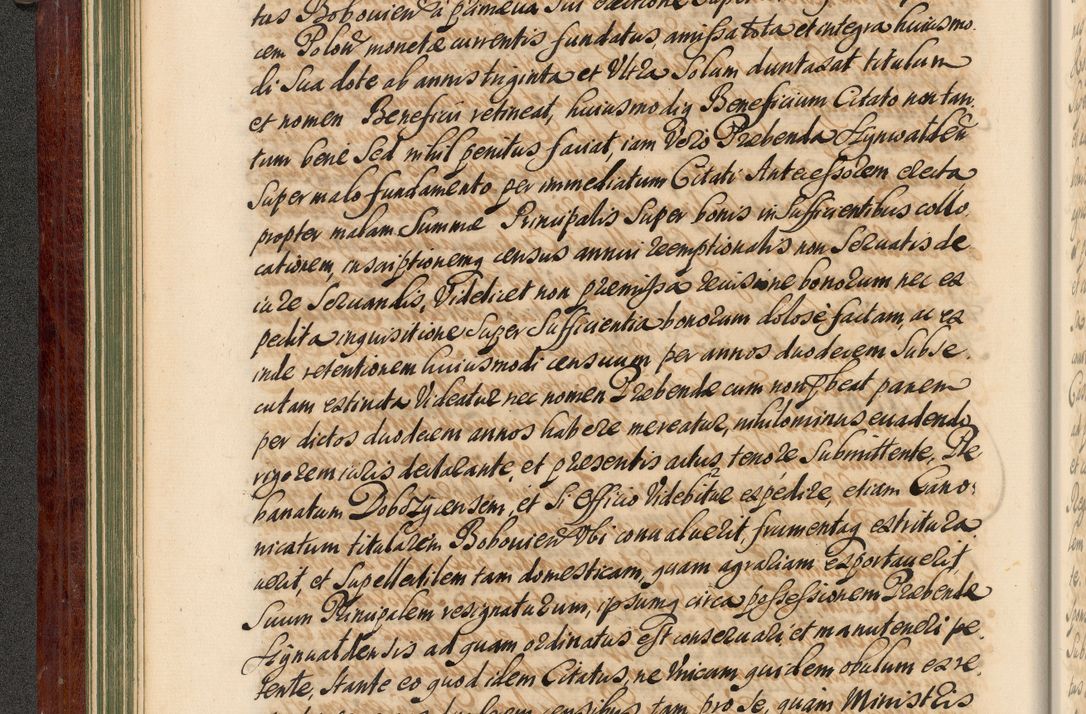 tus Bobovien à primæva sui erectione super
cem Polon monetæ currentis fundatus, amissa tota et integra huiusmo
di sua dote ab annis triginta et ultra solum duntaxat titulum
et nomen Beneficii retineat, huiusmodiq Beneficium Citato non tan
tum bene sed nihil penitus faciat, iam vero Præbenda Hynwalden
super malo fundamento per immediatum Citati Antecessorem erecta
propter malam summæ Principalis super bonis insufficientibus collo
cationem, inscriptionemq census annui reemptionalis non servatis de
iure servandis, videlicet non præmissa revisione bonorum nec ex
pedita inquisitione super sufficientia bonorum dolosè factam, ac ex
inde retentionem huiusmodi censuum per annos duodecem subse
cutam extincta videatur nec nomen Præbendæ cum non præbeat panem
per dictos duodecem annos habere mereatur, nihilominus evadendo
rigorem iuris declarante, et præsentis actus tenore submittente, Ple
banatum Dobczycensem, et si officio videbitur expedire, etiam Cano
nicatum titularem Bobovien ubi convaluerit, frumentaq extritura
verit, et supellectilem tam domesticam, quam agraliam exportaverit
suum Principalem resignaturum, ipsumq circa possessionem Præbendæ
Hynwaldensis ad quam ordinatus est conservari et manuteneri pe
tente, stante eo quod idem Citatus, ne unicum quidem obulum ex re
censibus tam pro se, quam Ministris